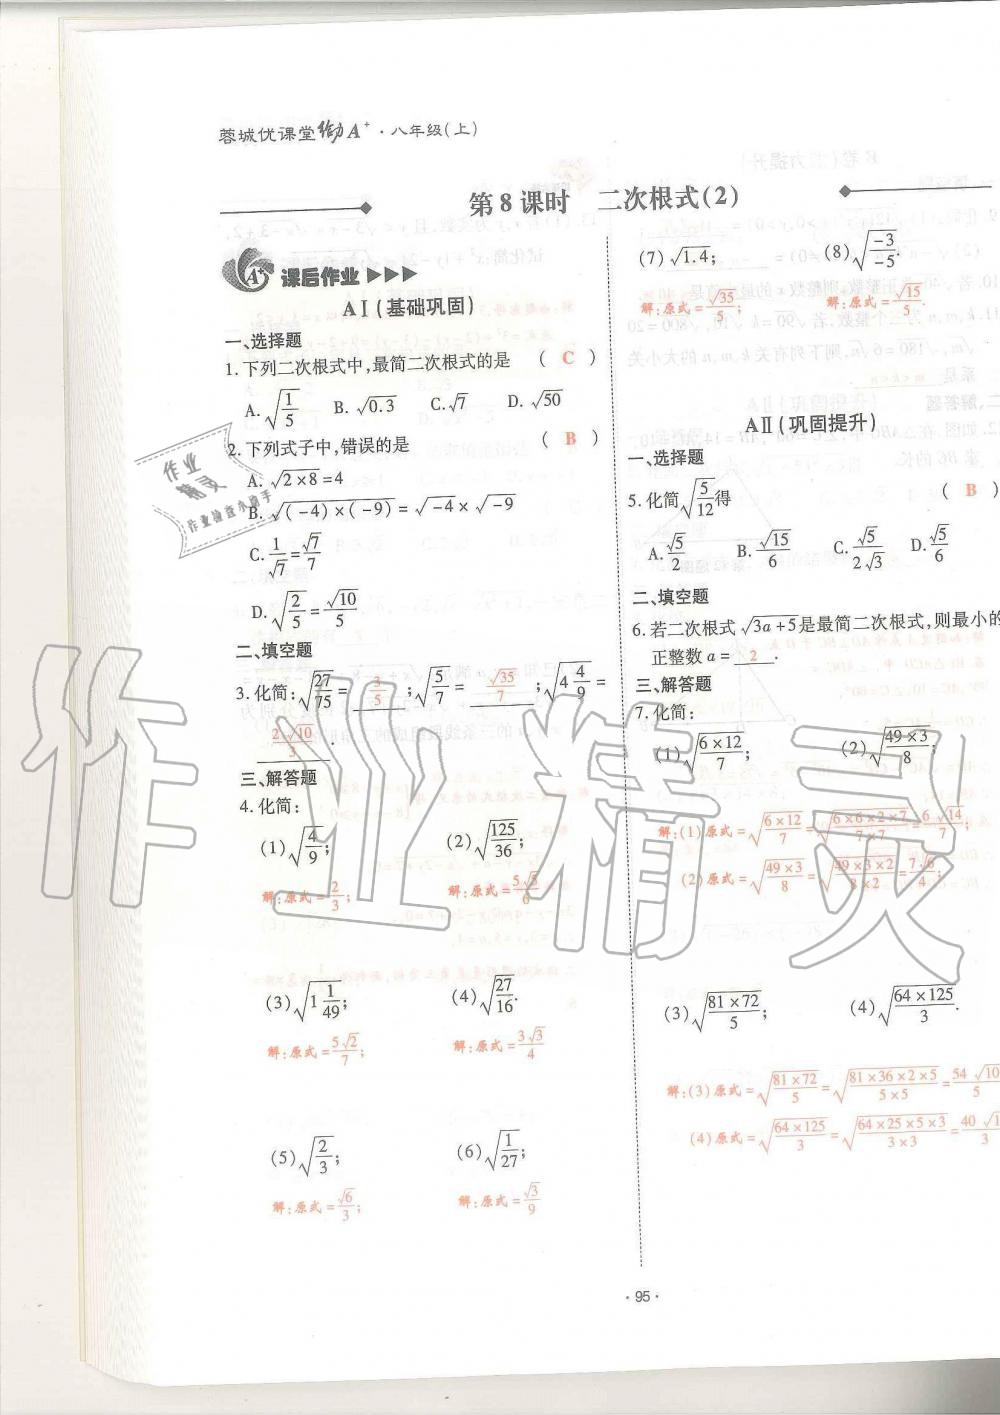 蓉城优课堂 给力A⁺·八年级(上)
第8课时 二次根式(2)
A⁺ 课后作业
AⅠ(基础巩固)
一、选择题
1.下列二次根式中,最简二次根式的是 ( C )
A.√(1/5) B.√0.3 C.√7 D.√50
2.下列式子中,错误的是 ( B )
A.√(2×8)=4
B.√((-4)×(-9))=√-4×√-9
C.1/√7=√7/7
D.√(2/5)=√10/5
二、填空题
3.化简:√(27/75)= 3/5 ;√(5/7)= √35/7 ;√(4 4/9)=
2√10/3 .
三、解答题
4.化简:
(1)√(4/9); (2)√(125/36);
解:原式=2/3; 解:原式=5√5/6
(3)√(1 1/49); (4)√(27/16).
解:原式=5√2/7; 解:原式=3√3/4
(5)√(2/3); (6)√(1/27);
解:原式=√6/3; 解:原式=√3/9
(7)√1.4; (8)√(-3/-5).
解:原式=√35/5; 解:原式=√15/5.
AⅡ(巩固提升)
一、选择题
5.化简√(5/12)得 ( B )
A.√5/2 B.√15/6 C.√5/2√3 D.√5/6
二、填空题
6.若二次根式√(3a+5)是最简二次根式,则最小的
正整数a= 2 .
三、解答题
7.化简:
(1)√(6×12/7); (2)√(49×3/8);
解:(1)原式=√(6×12/7)=√(6×6×2×7/7×7)=6√14/7
(2)原式=√(49×3/8)=√(49×3×2/8×2)=7√6/4
(3)√(81×72/5); (4)√(64×125/3).
解:(3)原式=√(81×72/5)=√(81×36×2×5/5×5)=54√10/5
(4)原式=√(64×125/3)=√(64×25×5×3/3×3)=40√1
·95·
作业精灵
作业精灵
作业检查小助手